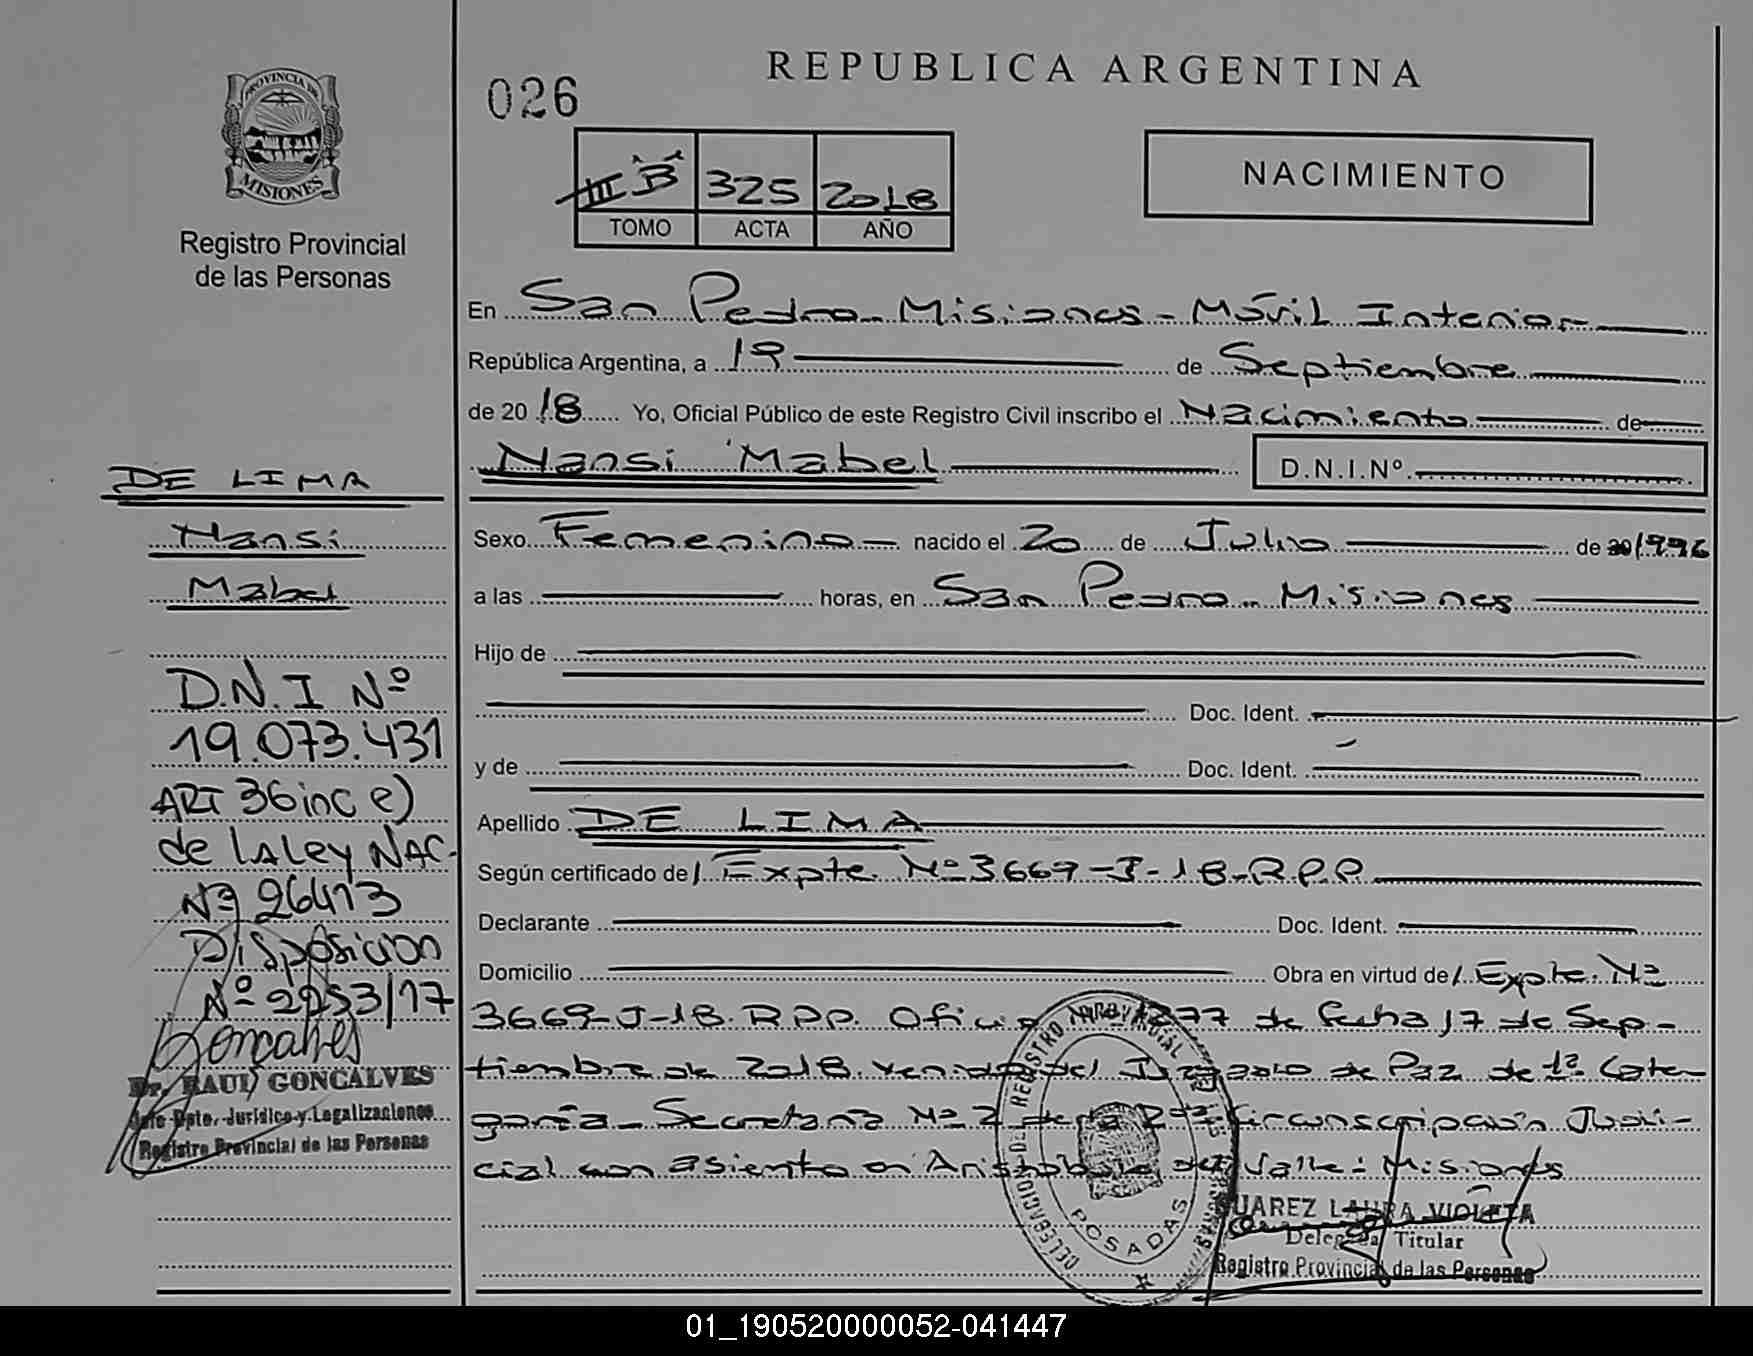 PROVINCIA DE
MISIONES
Registro Provincial
de las Personas
DE LIMA
Nansi
Mabel
D.N.I Nº
19.073.431
ART 36 inc e)
de la Ley NAC.
Nº 26413
Disposicion
Nº 2253/17
Goncalves
Dr. RAUL GONCALVES
Jefe Dpto. Jurídico y Legalizaciones
Registro Provincial de las Personas
026
REPUBLICA ARGENTINA
III "B" 325 2018
TOMO ACTA AÑO
NACIMIENTO
En San Pedro - Misiones - Móvil Interior
República Argentina, a 19 de Septiembre
de 2018 Yo, Oficial Público de este Registro Civil inscribo el Nacimiento de
Nansi Mabel D.N.I.Nº
Sexo Femenino nacido el 20 de Julio de 20 1996
a las horas, en San Pedro - Misiones
Hijo de
Doc. Ident.
y de Doc. Ident.
Apellido DE LIMA
Según certificado de/ Expte. Nº 3669-J-18-R.P.P.
Declarante Doc. Ident.
Domicilio Obra en virtud de/ Expte. Nº
3669-J-18. R.P.P. Oficio Nº 1277 de fecha 17 de Sep-
tiembre de 2018. venido del Juzgado de Paz de 1ª Cate-
goría - Secretaría Nº 2 de la 2da Circunscripción Judi-
cial con asiento en Aristóbulo del Valle - Misiones
DELEGACION DEL REGISTRO PROVINCIAL DE LAS PERSONAS
POSADAS
SUAREZ LAURA VIOLETA
Delegada Titular
Registro Provincial de las Personas
01_190520000052-041447